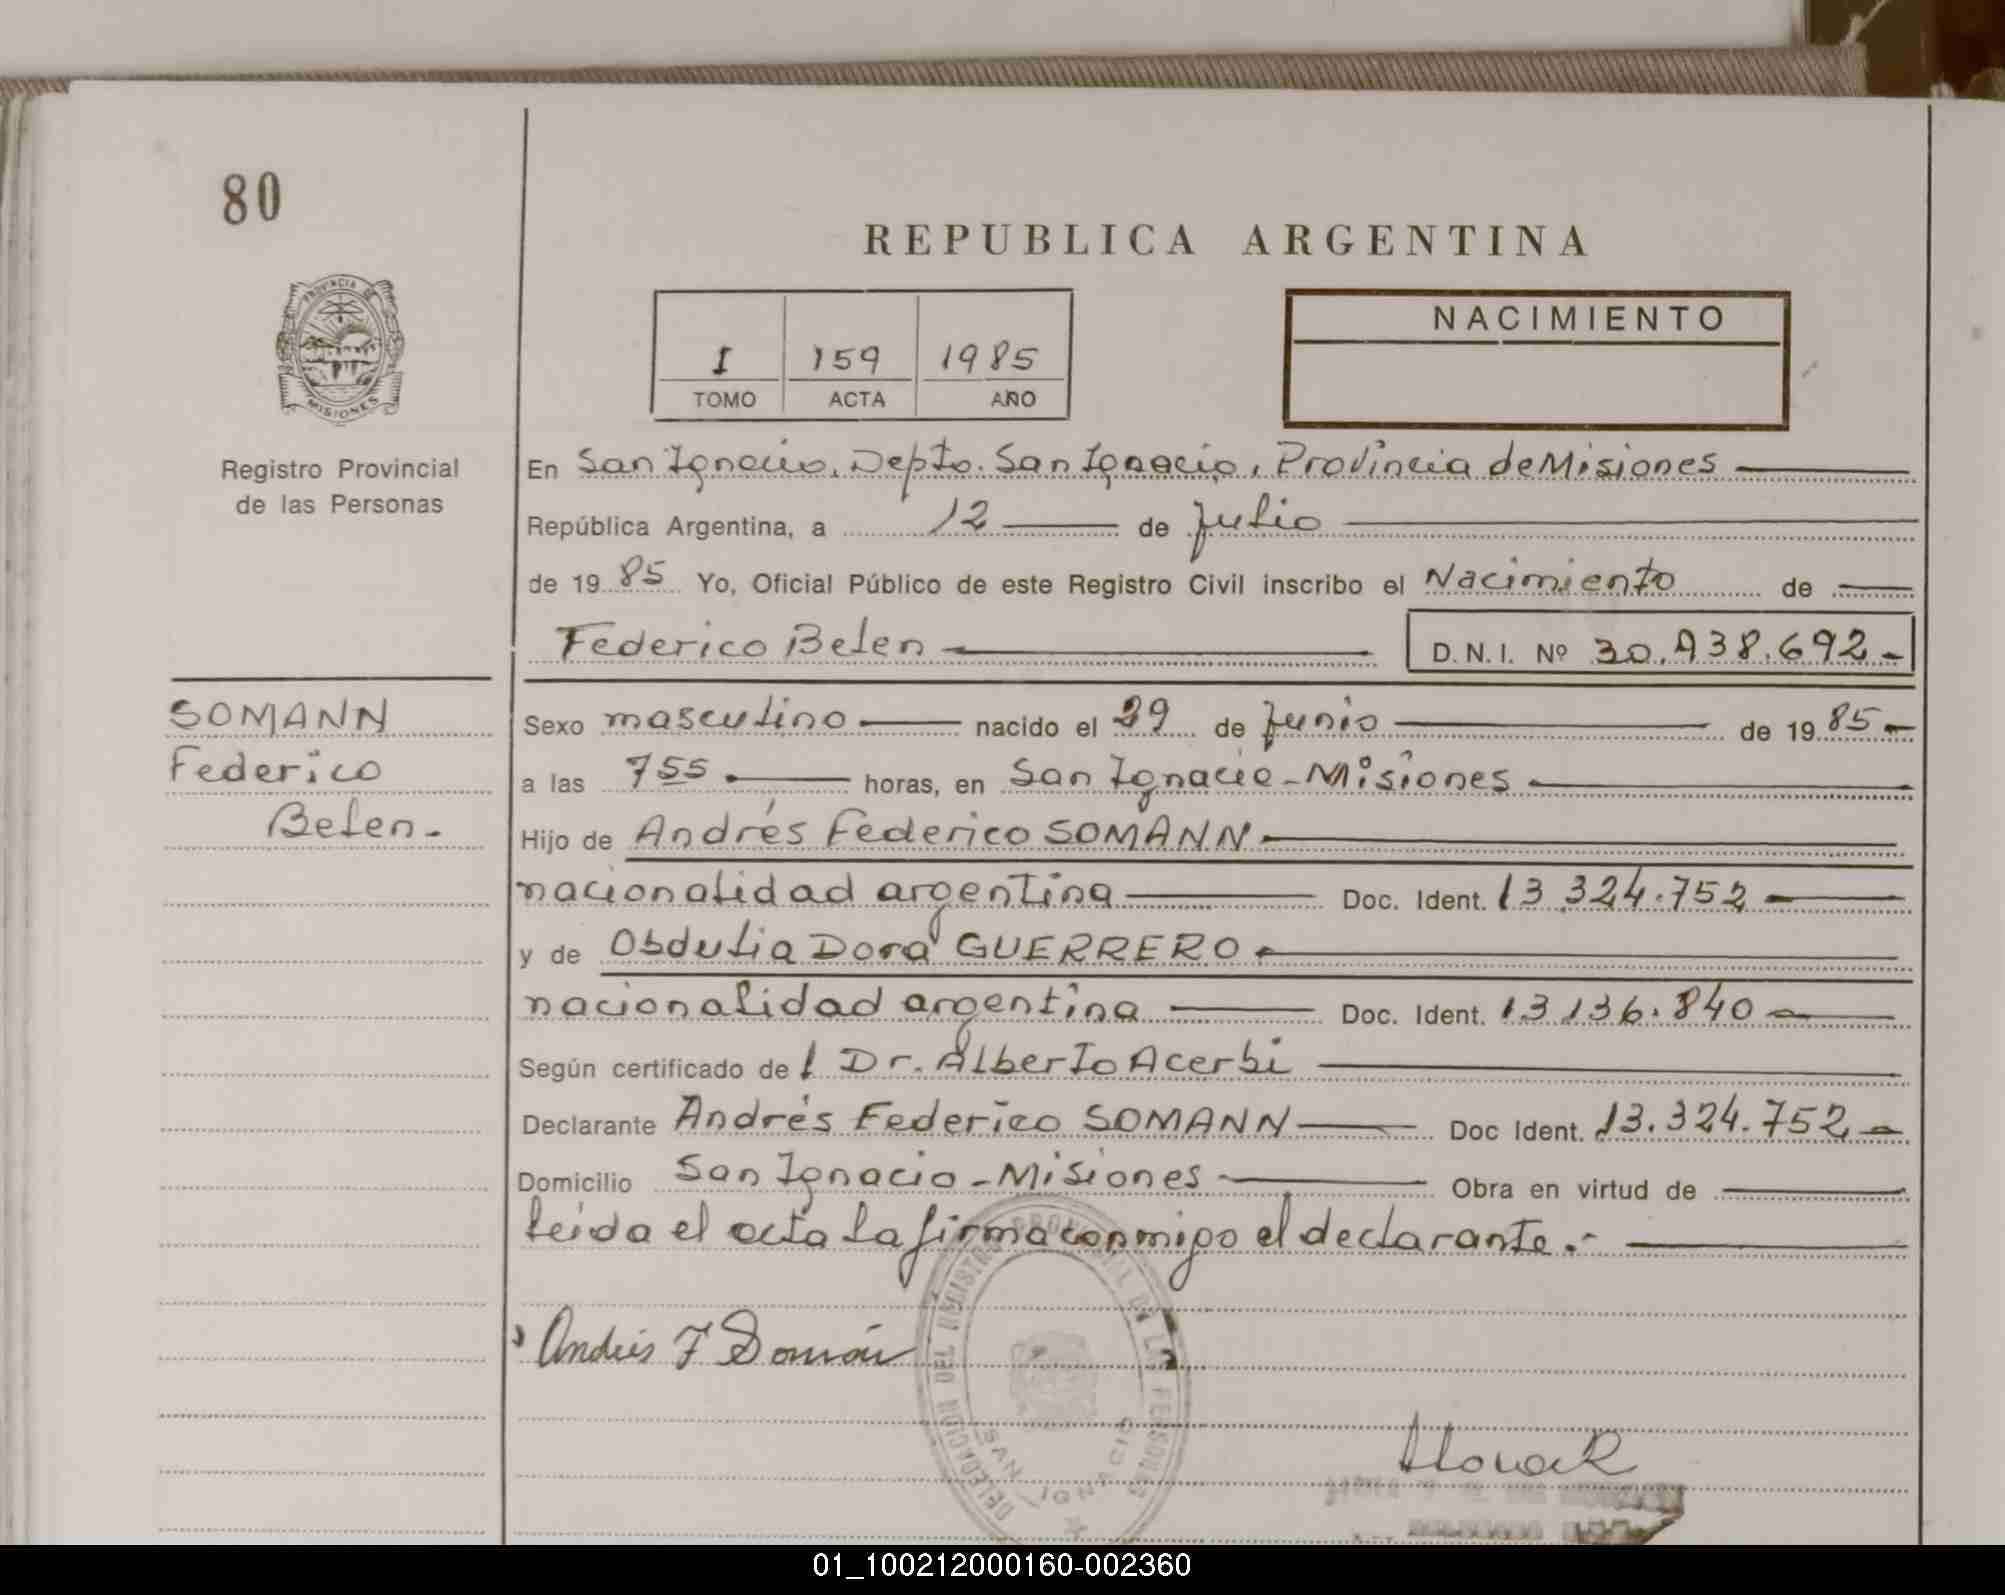 80
REPUBLICA ARGENTINA
PROVINCIA DE
MISIONES
Registro Provincial
de las Personas
I 159 1985
TOMO ACTA AÑO
NACIMIENTO
En San Ignacio, Depto. San Ignacio, Provincia de Misiones
República Argentina, a 12 de Julio
de 1985 Yo, Oficial Público de este Registro Civil inscribo el Nacimiento de
Federico Belen D.N.I. Nº 30.938.692-
SOMANN
Federico
Belen-
Sexo masculino nacido el 29 de Junio de 1985-
a las 755 horas, en San Ignacio-Misiones
Hijo de Andrés Federico SOMANN
nacionalidad argentina Doc. Ident. 13.324.752
y de Obdulia Dora GUERRERO
nacionalidad argentina Doc. Ident. 13.136.840
Según certificado del Dr. Alberto Acerbi
Declarante Andrés Federico SOMANN Doc Ident. 13.324.752
Domicilio San Ignacio-Misiones Obra en virtud de
leida el acta la firma conmigo el declarante.-
Andrés F Somán
DELEGACION DEL REGISTRO PROVINCIAL DE LAS PERSONAS
SAN IGNACIO
01_100212000160-002360